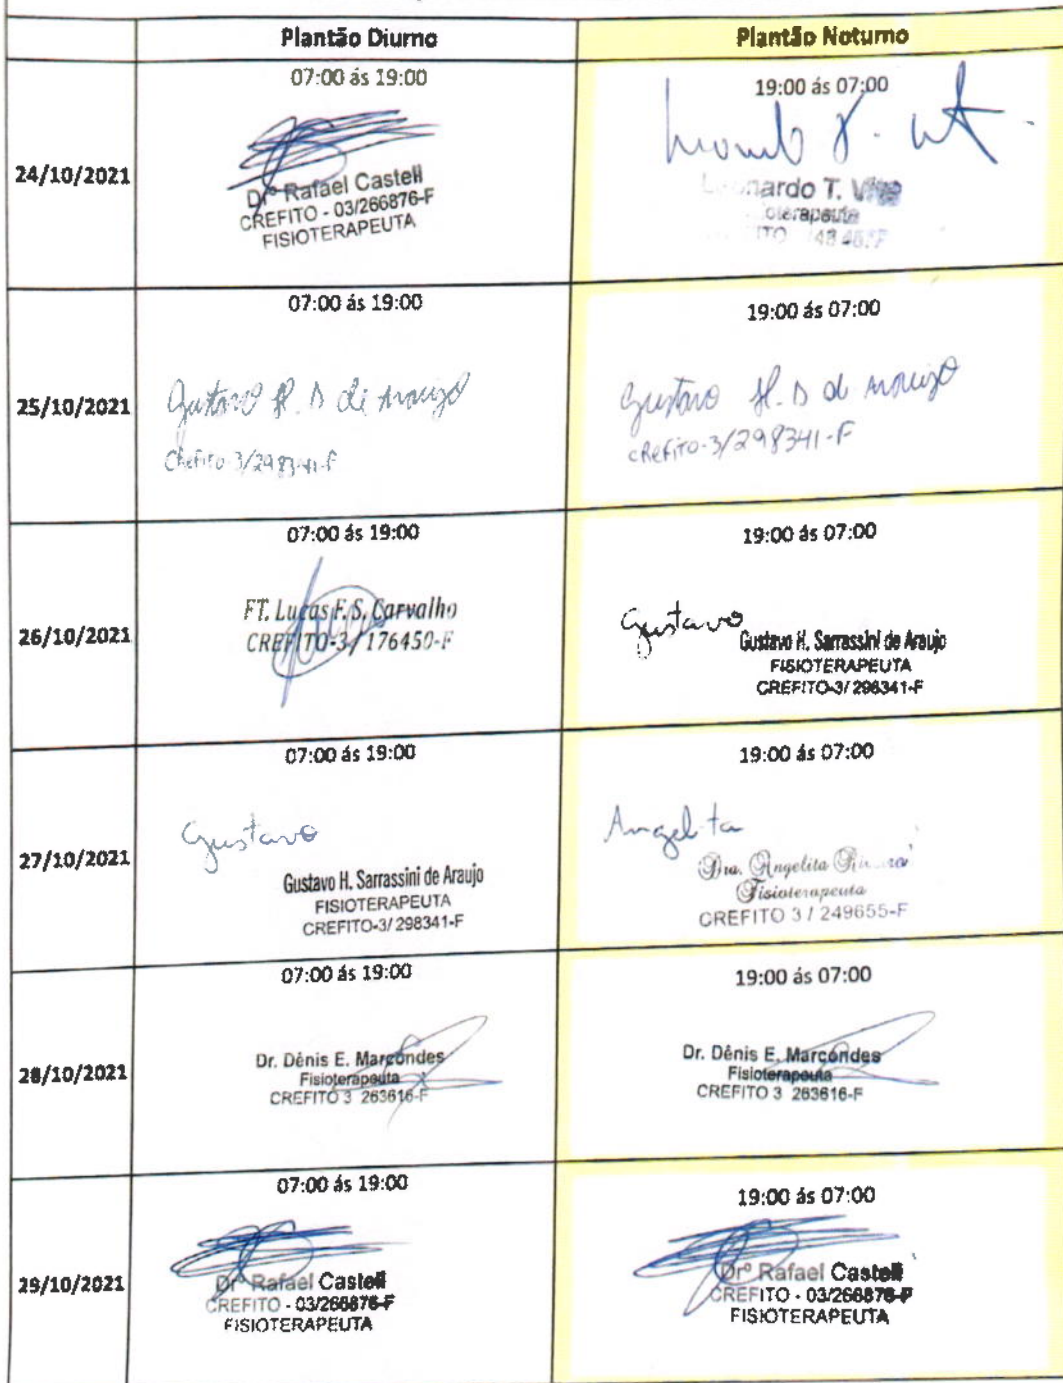 Plantão Diurno
Plantão Noturno
24/10/2021
07:00 ás 19:00
Drº Rafael Casteli
CREFITO - 03/266876-F
FISIOTERAPEUTA
19:00 ás 07:00
Leonardo T.
Fisioterapeuta
25/10/2021
07:00 ás 19:00
Gustavo H. S de Araujo
Crefito-3/298341-F
19:00 ás 07:00
Gustavo H. S de Araujo
CREFITO-3/298341-F
26/10/2021
07:00 ás 19:00
FT. Lucas F. S. Carvalho
CREFITO-3 / 176450-F
19:00 ás 07:00
Gustavo
Gustavo H. Sarrassini de Araujo
FISIOTERAPEUTA
CREFITO-3/ 298341-F
27/10/2021
07:00 ás 19:00
Gustavo
Gustavo H. Sarrassini de Araujo
FISIOTERAPEUTA
CREFITO-3/ 298341-F
19:00 ás 07:00
Angelita
Dra. Angelita
Fisioterapeuta
CREFITO 3 / 249655-F
28/10/2021
07:00 ás 19:00
Dr. Dênis E. Marcondes
Fisioterapeuta
CREFITO 3 263616-F
19:00 ás 07:00
Dr. Dênis E. Marcondes
Fisioterapeuta
CREFITO 3 263616-F
29/10/2021
07:00 ás 19:00
Drº Rafael Casteli
CREFITO - 03/266876-F
FISIOTERAPEUTA
19:00 ás 07:00
Drº Rafael Casteli
CREFITO - 03/266876-F
FISIOTERAPEUTA